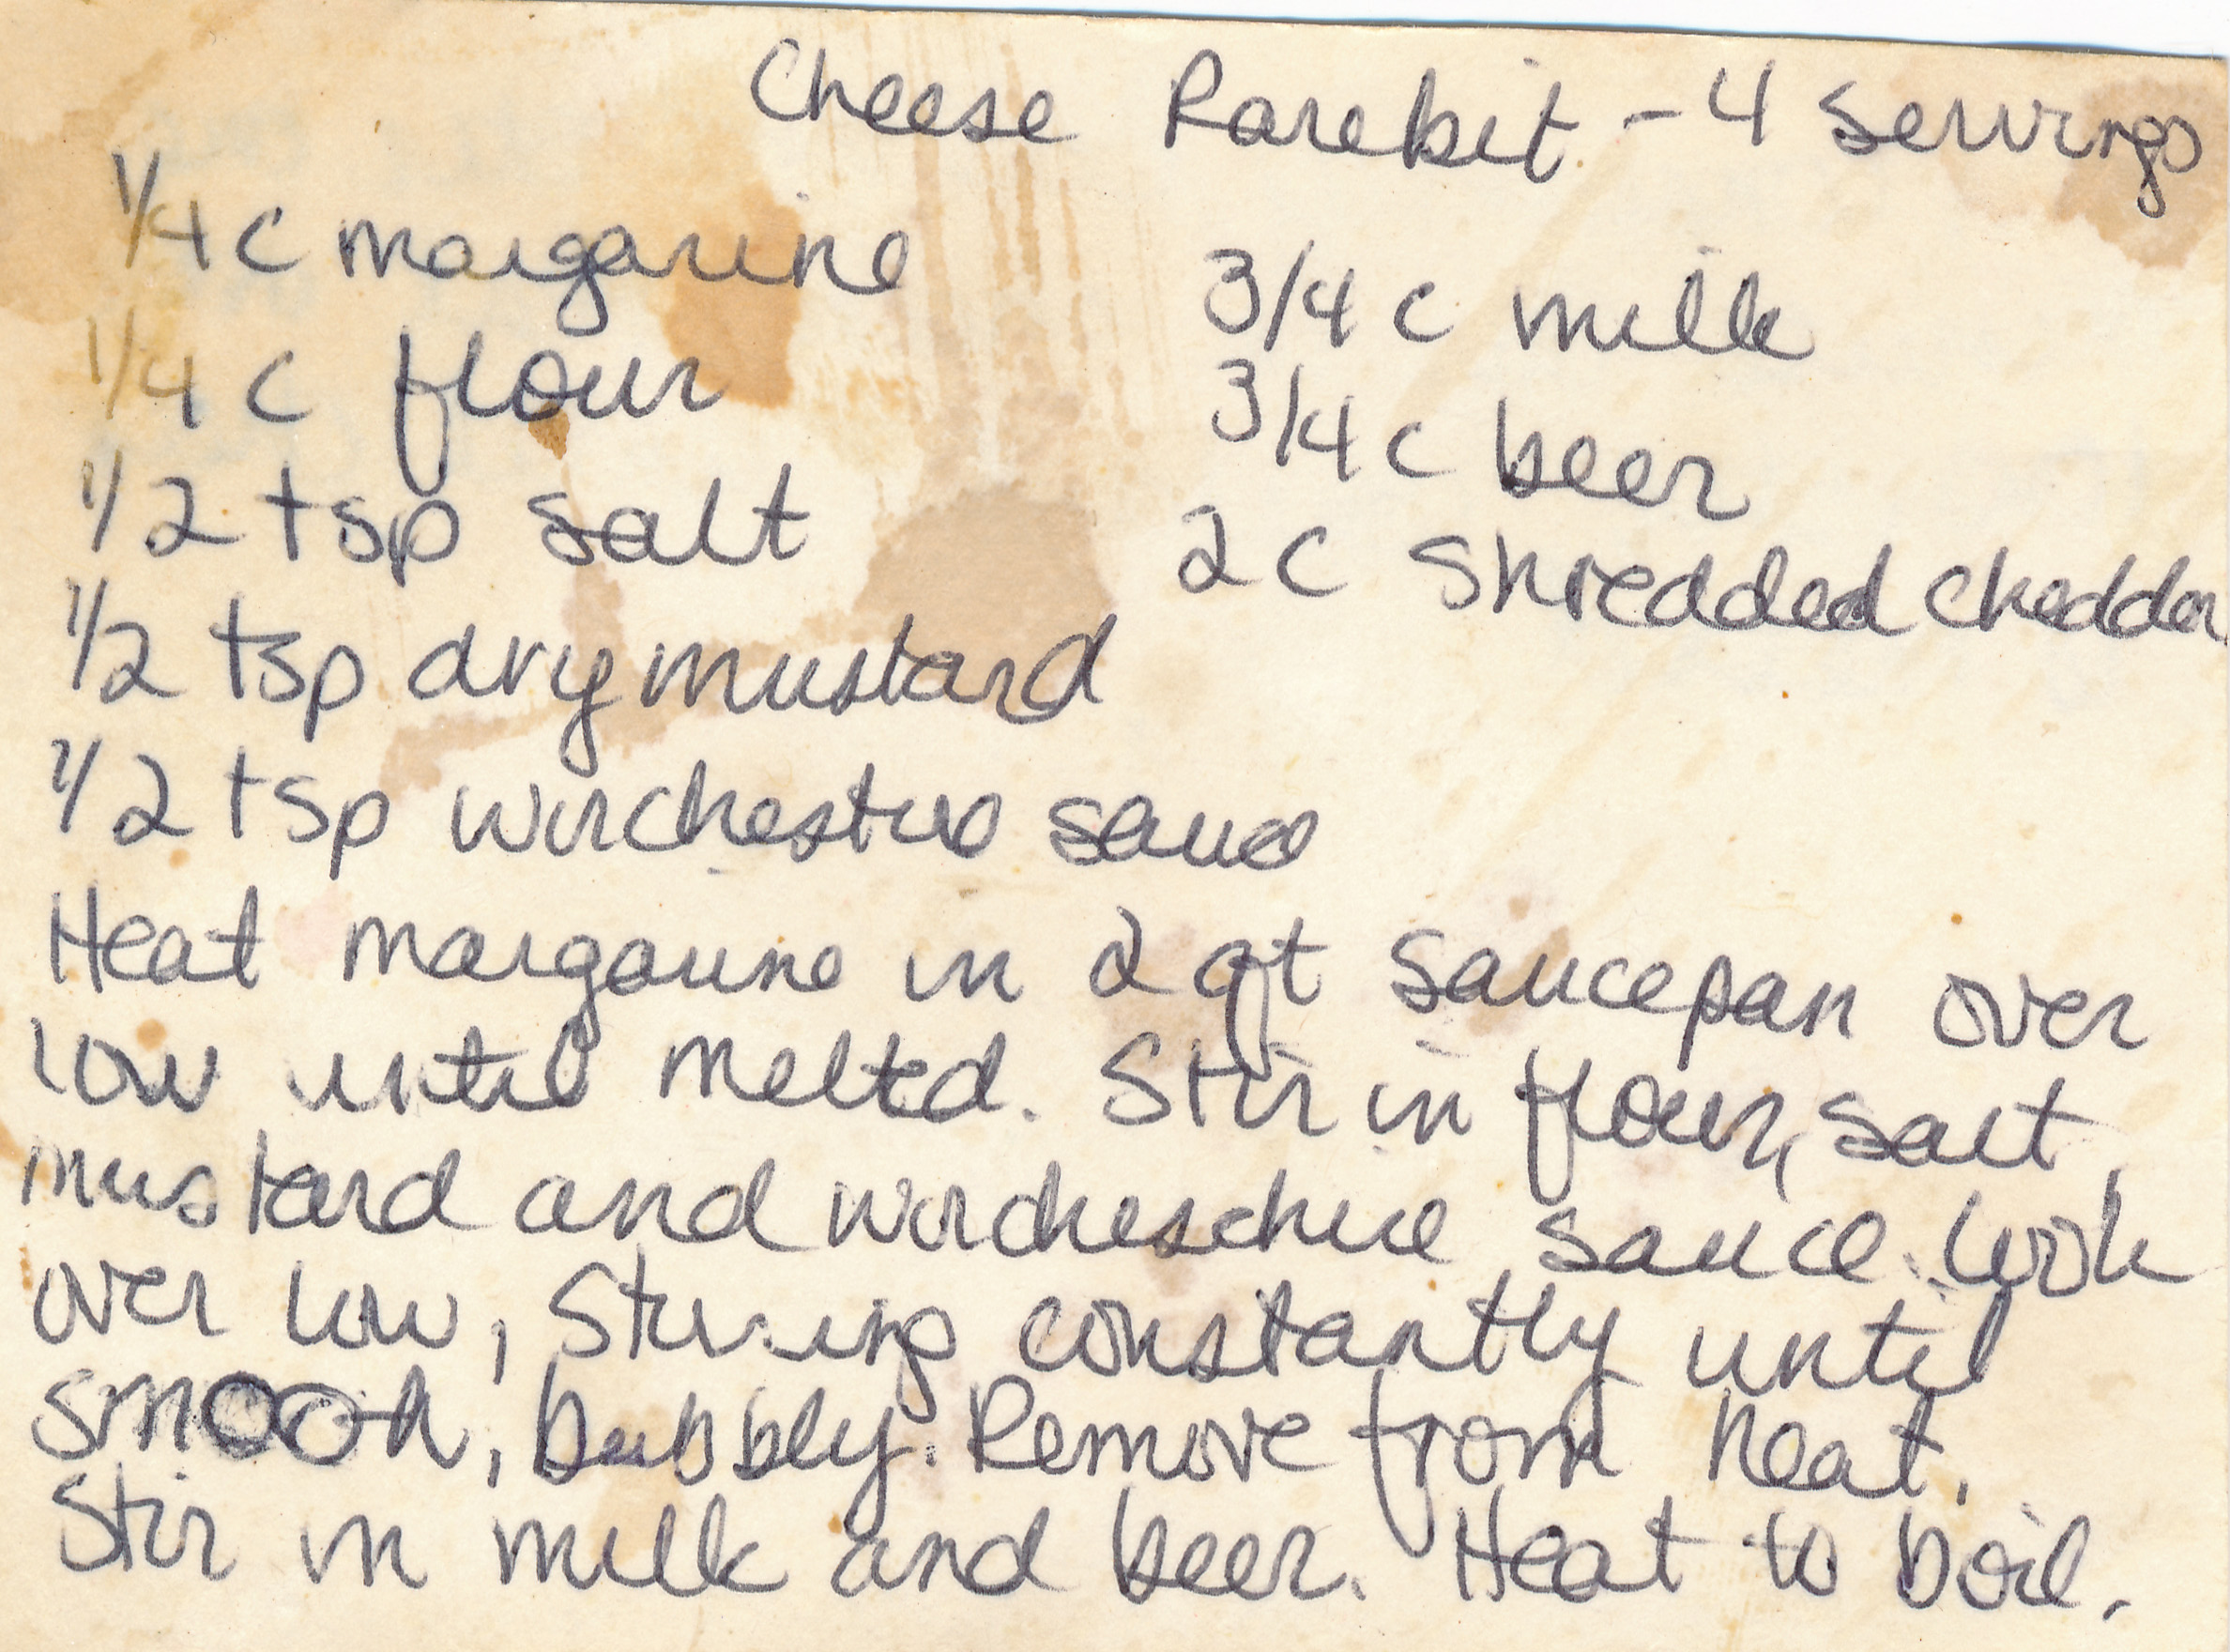 Cheese Rarebit - 4 servings
1/4 c margarine
1/4 c flour
1/2 tsp salt
1/2 tsp dry mustard
1/2 tsp wirchestire sauce
3/4 c milk
3/4 c beer
2 c shredded cheddar
Heat margarine in 2 qt saucepan over
low until meltd. Stir in flour, salt,
mustard and worcheschire sauce. Cook
over low, stirring constantly until
smooth, bubbly. Remove from heat.
Stir in milk and beer. Heat to boil.